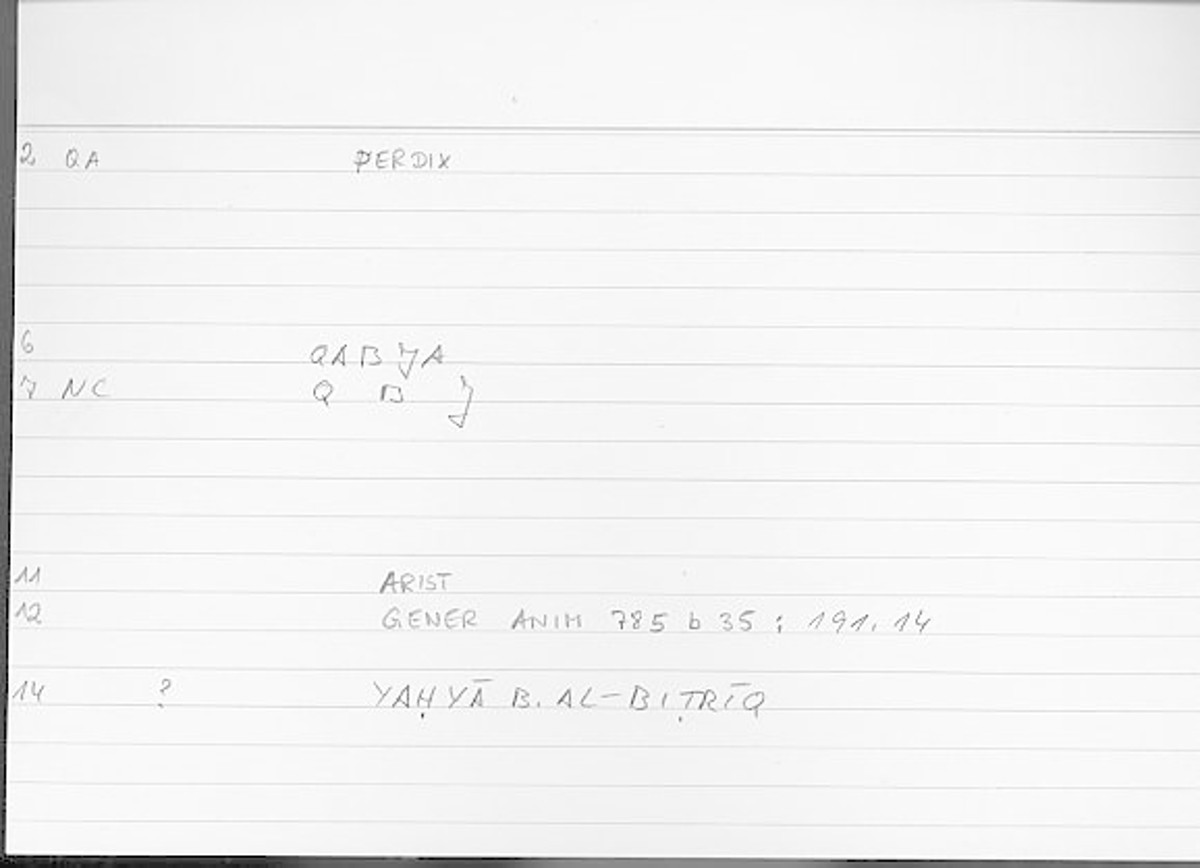 2 QA PERDIX
6 QABJA
7 NC Q B J
11 ARIST
12 GENER ANIM 785 b 35 ; 191.14
14 ? YAḤYĀ B. AL-BIṬRĪQ